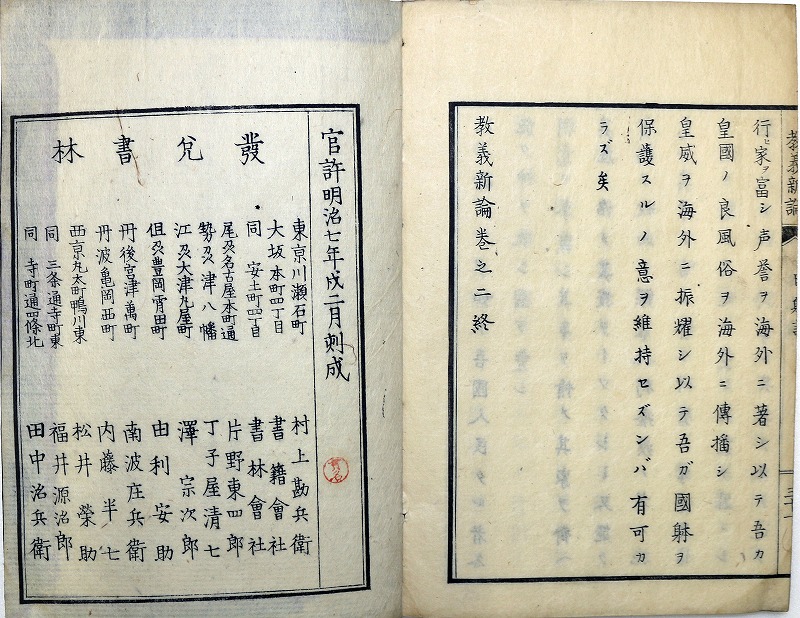 行ヒ家ヲ富シ声誉ヲ海外ニ著シ以テ吾カ
皇國ノ良風俗ヲ海外ニ傳播シ
皇威ヲ海外ニ振耀シ以テ吾ガ國躰ヲ
保護スルノ意ヲ維持セズンバ有可カ
ラズ矣
教義新論巻之二終
教義新論
三十一
官許明治七年戌二月刺成
發兌書林
東京川瀬石町 村上勘兵衛
大坂本町四丁目 書籍會社
同 安土町四丁目 書林會社
尾刕名古屋本町通 片野東四郎
勢刕津八幡 丁子屋清七
江刕大津丸屋町 澤宗次郎
但刕豊岡宵田町 由利安助
丹後宮津萬町 南波庄兵衛
丹波亀岡西町 内藤半七
西京丸太町鴨川東 松井榮助
同 三条通寺町東 福井源治郎
同 寺町通四條北 田中治兵衛